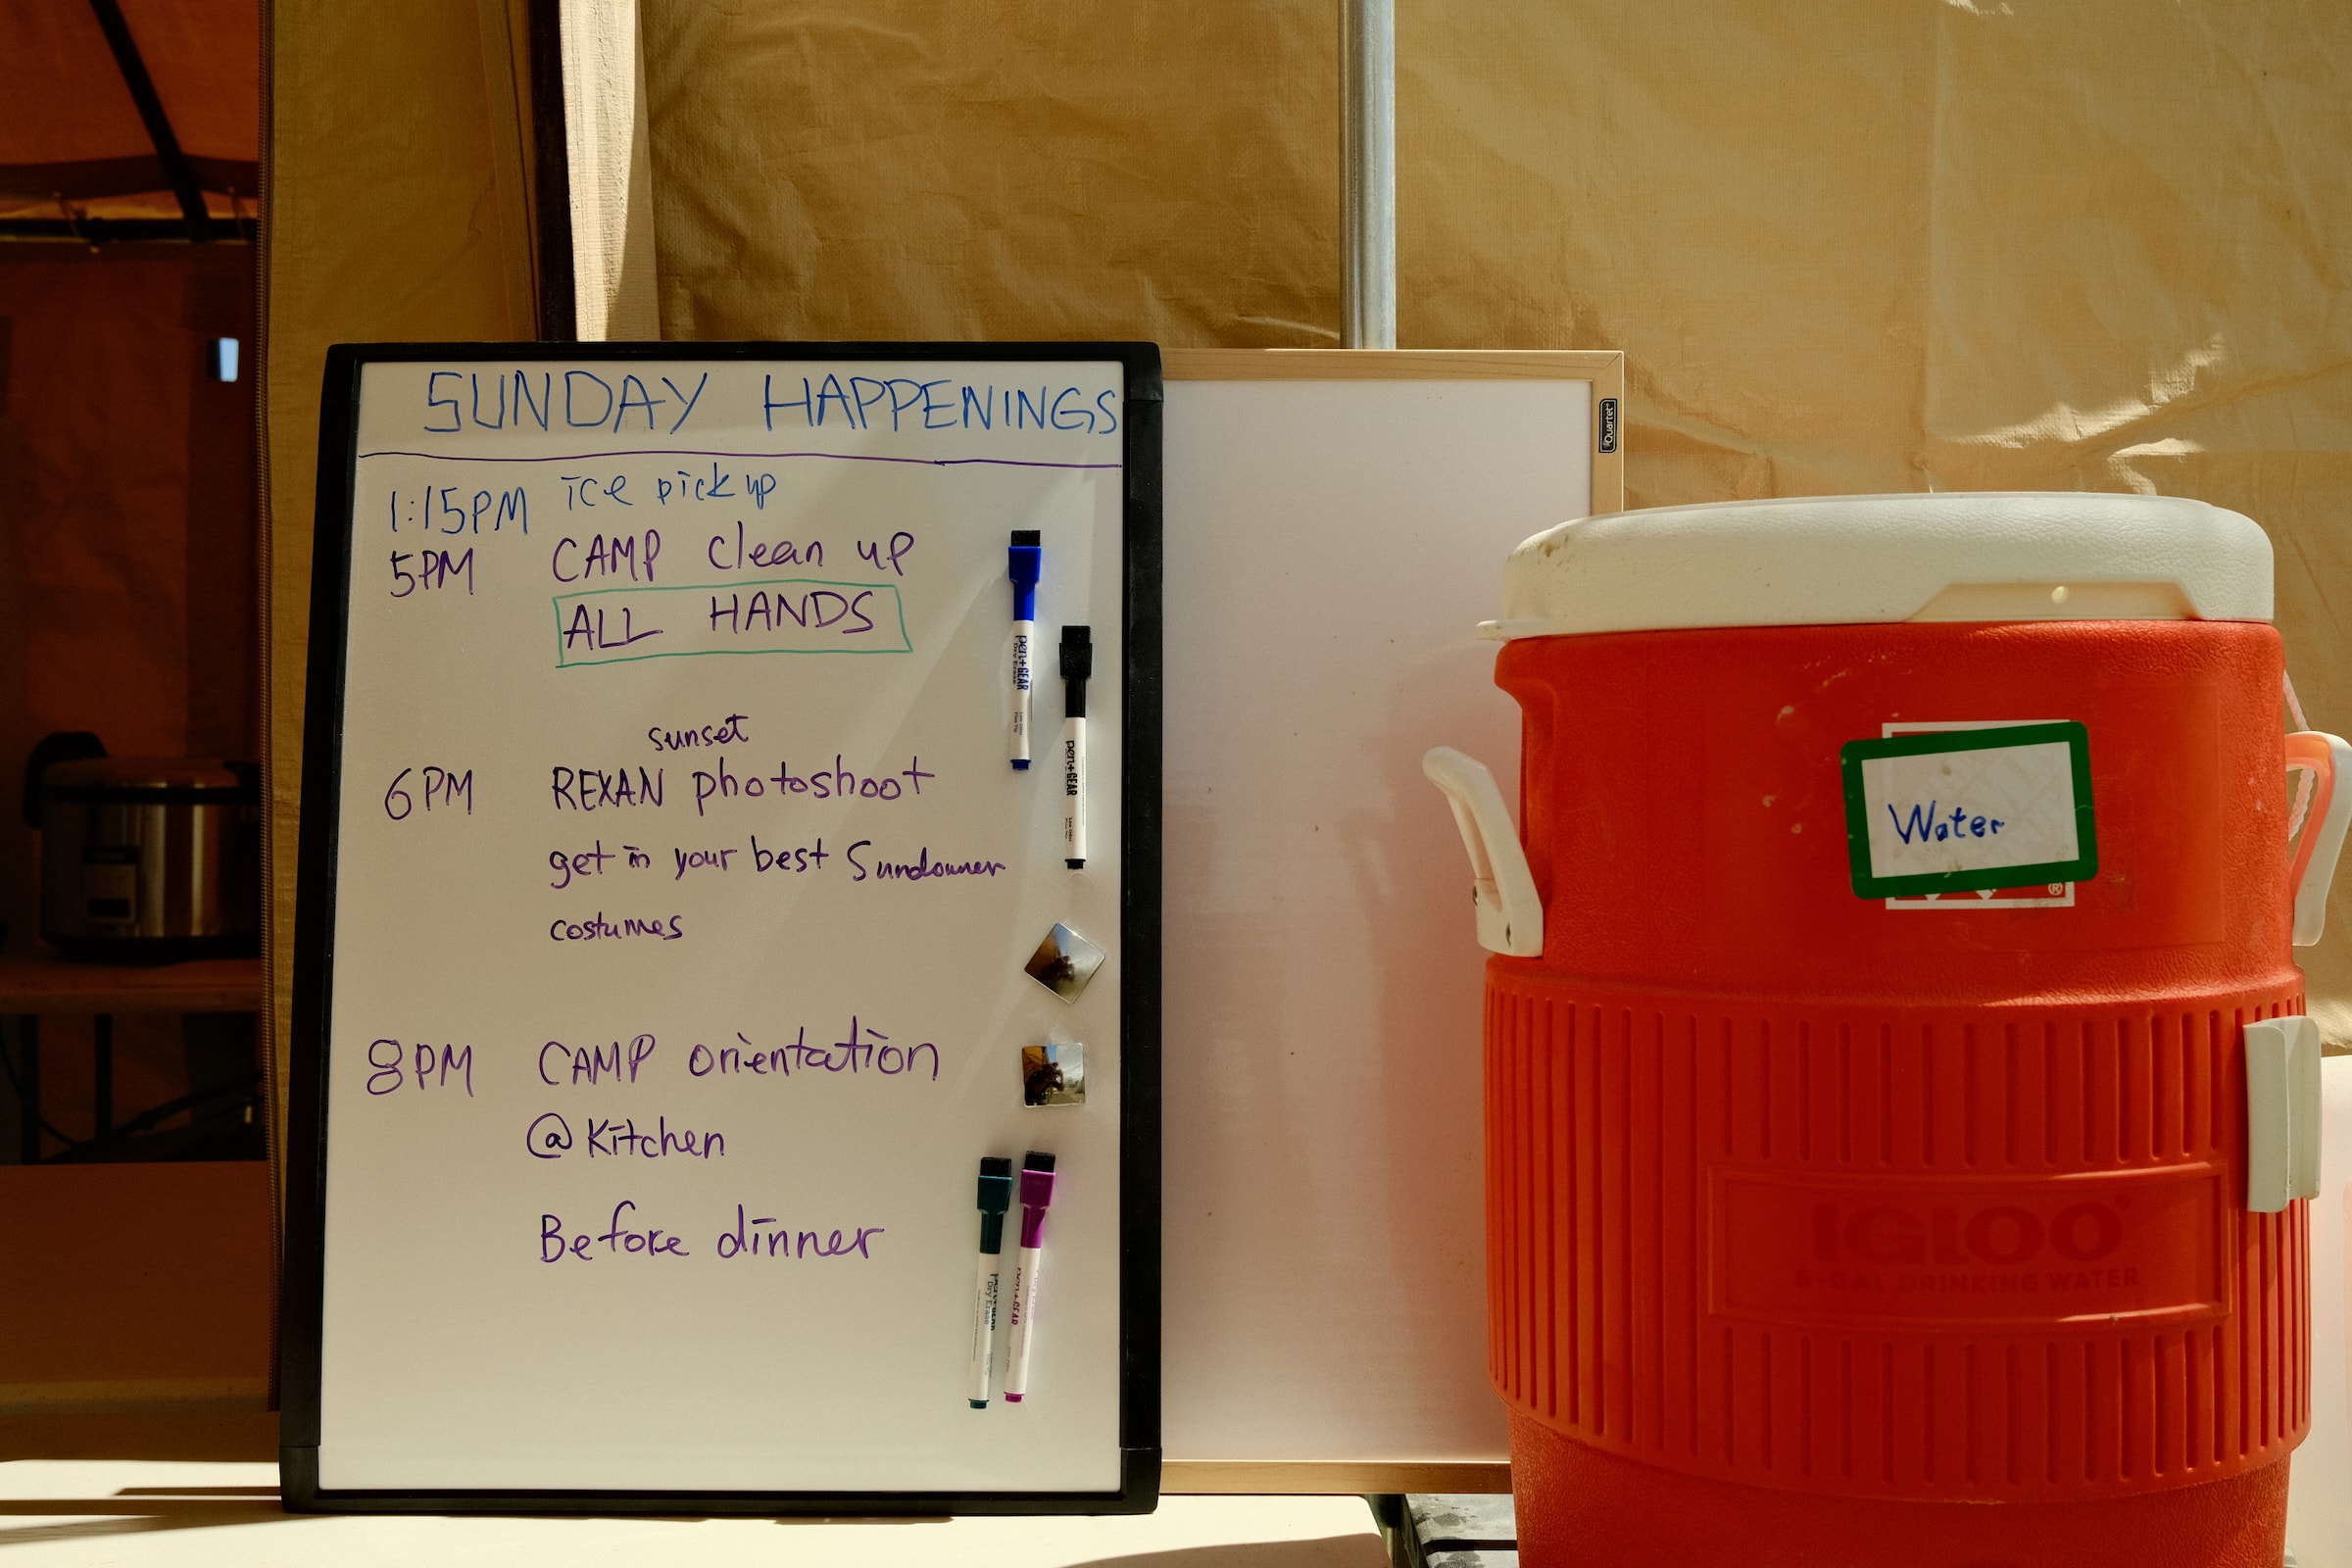 SUNDAY HAPPENINGS
1:15PM ice pick up
5PM CAMP clean up
ALL HANDS
sunset
6PM REXAN photoshoot
get in your best Sundowner
costumes
8PM CAMP orientation
@ Kitchen
Before dinner
pen+GEAR
Dry Erase
pen+GEAR
pen+GEAR
Dry Erase
pen+GEAR
Quartet
Water
®
IGLOO
5-GAL DRINKING WATER